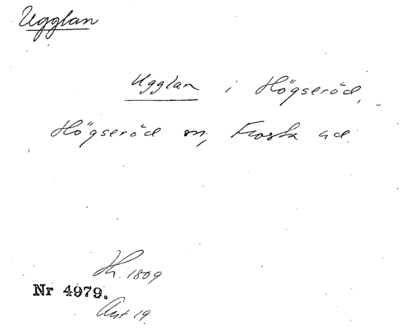 Ugglan
Ugglan i Högseröd,
Högseröd sn, Frosta hd
1809
Nr 4979.
19